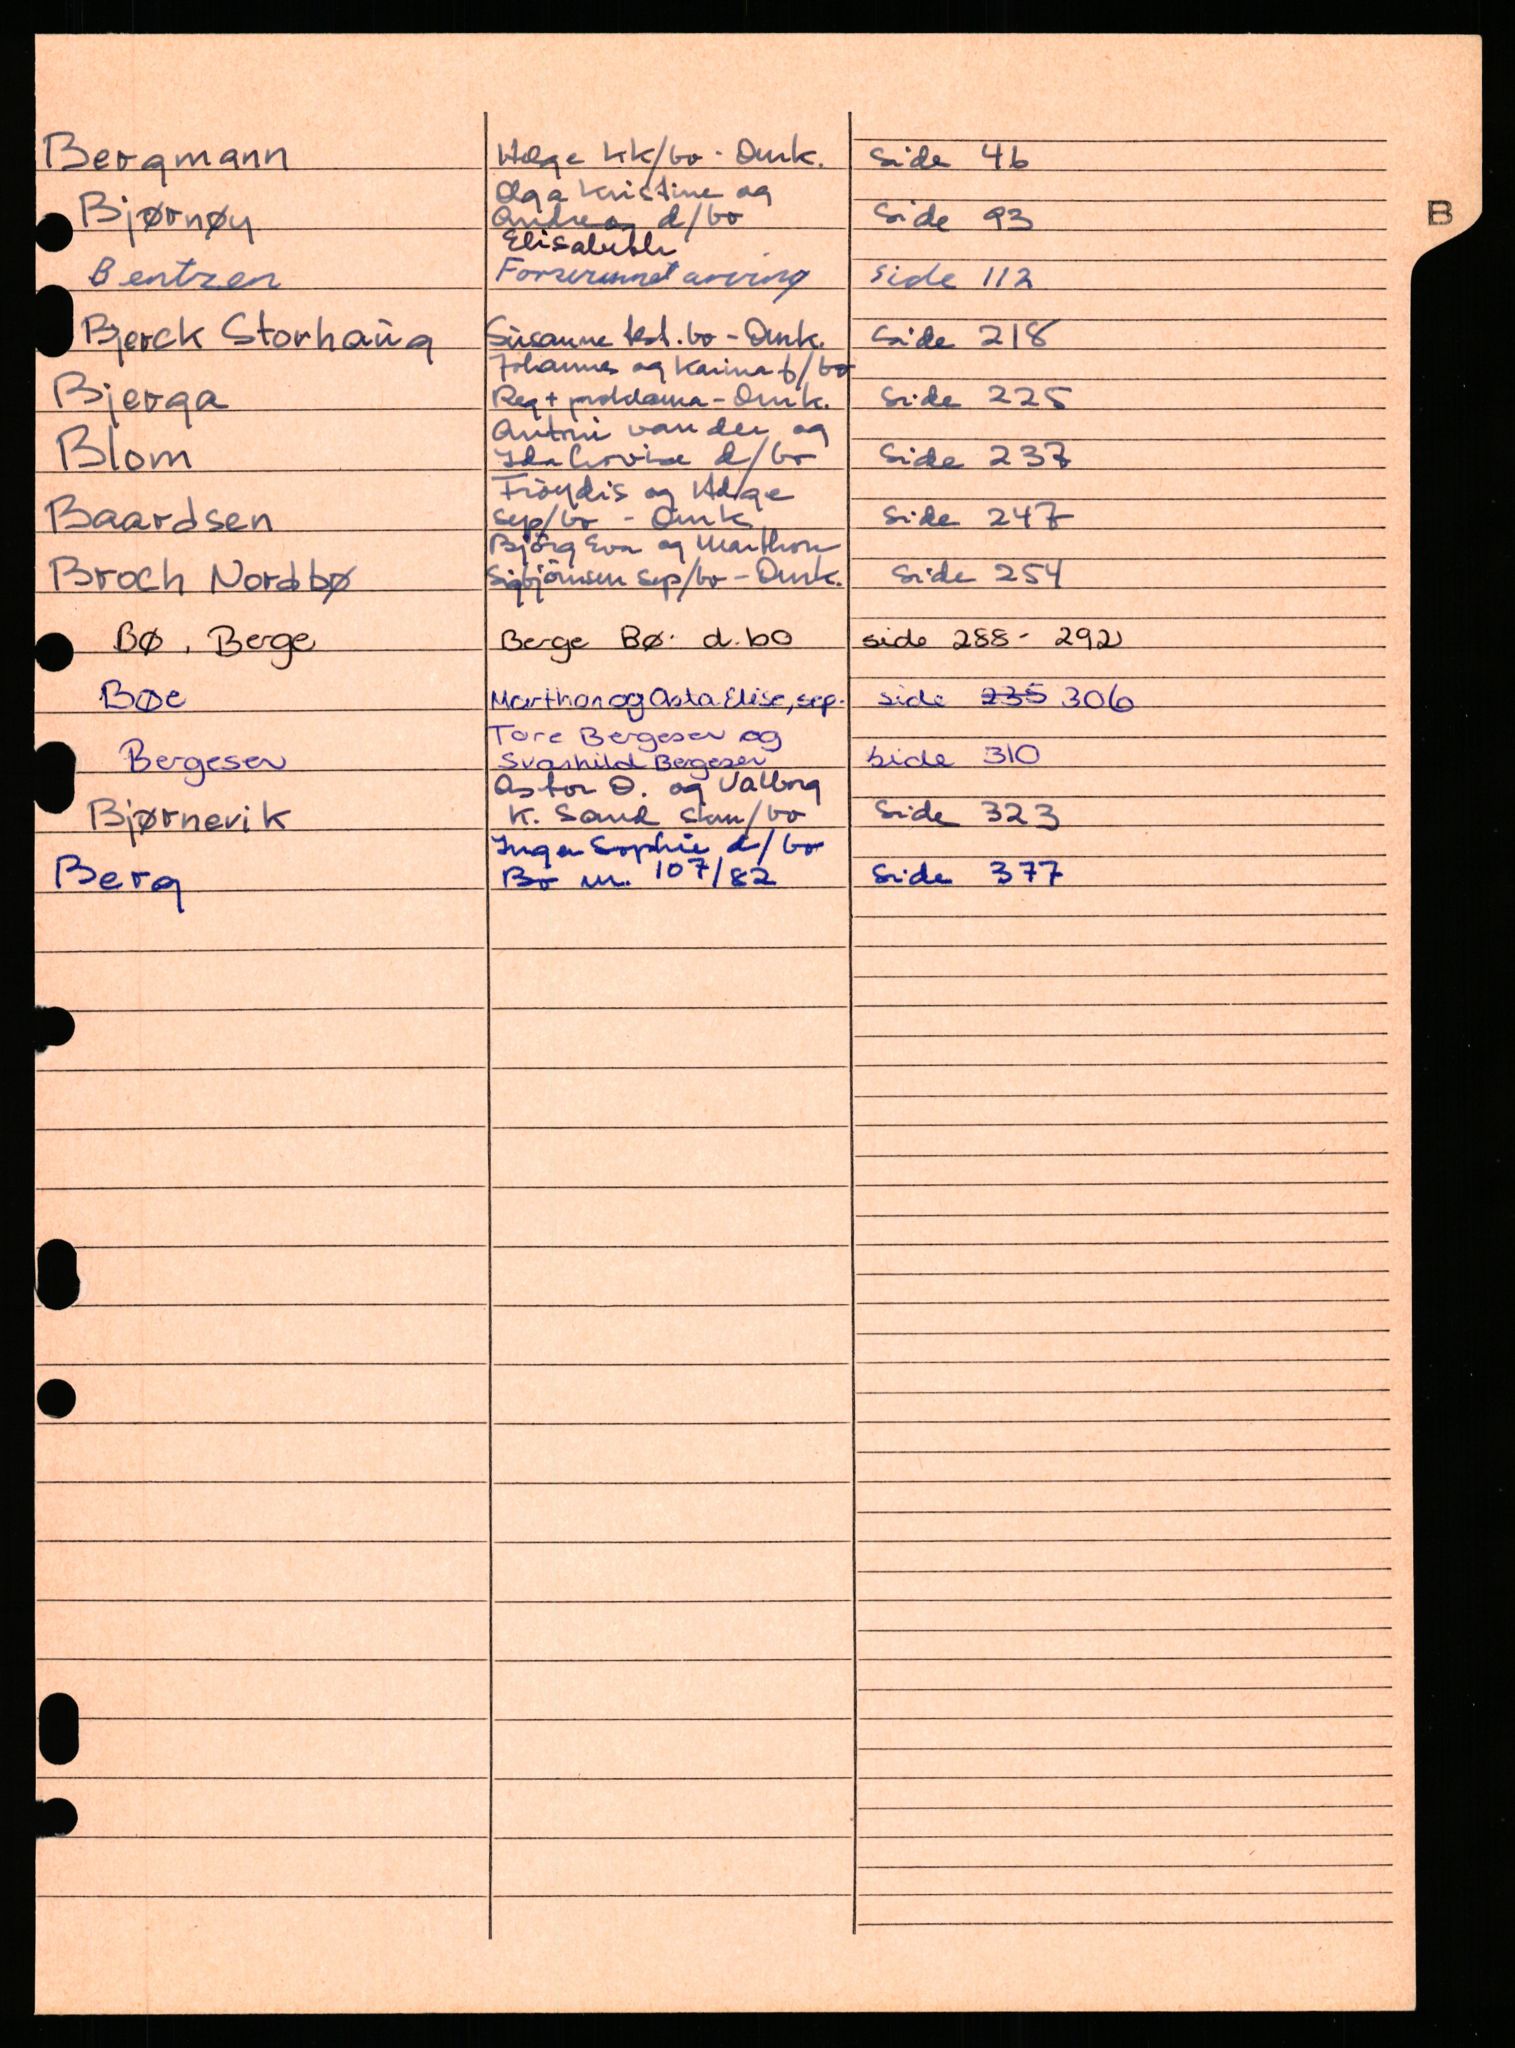 B
Bergmann Helge KK/bo - Omk. side 46
Olga Kristine og
Bjørnøy Andrea d/bo side 93
Elisabeth
Bentzen Forsvunnet arving side 112
Bjerck Storhaug Susanne test.bo - Omk. side 218
Johannes og Karina f/bo
Bjerga Reg + proklama - Omk. side 225
Antoni van der og
Blom Ida Lovise d/bo side 237
Fröydis og Helge
Baardsen sep/bo - Omk side 247
Björg Eva og Marthon
Broch Nordbø Sigbjörnsen sep/bo - Omk. side 254
Bø, Berge Berge Bø. d.bo side 288 - 292
Bøe Marthon og Asta Elise, sep. side 235 306
Tore Bergesen og
Bergesen Svanhild Bergesen side 310
Astor O. og Valborg
Bjørnevik K. Sand skm/bo side 323
Inga Sophie d/bo
Berg Bo nr. 107/82 side 377